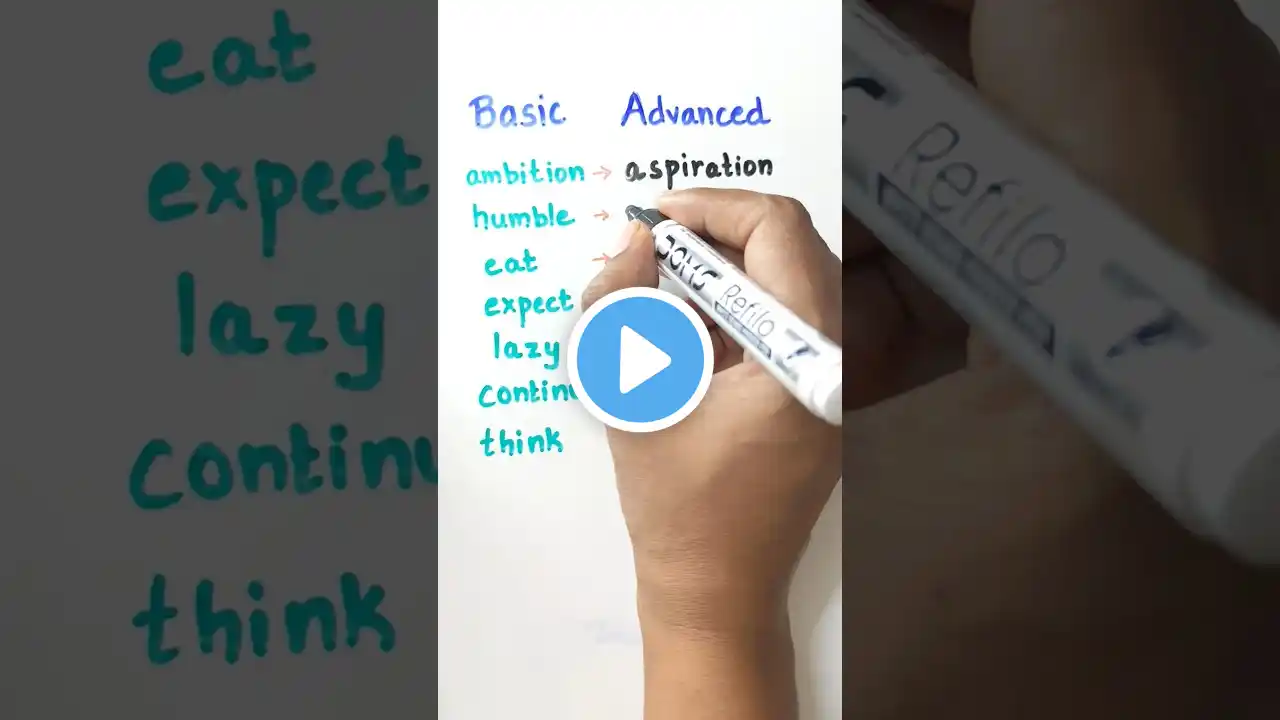 Basic Advanced
ambition → aspiration
humble →
eat →
expect
lazy
continu
think
DOMS Refilo
eat
expect
lazy
continu
think
Refilo